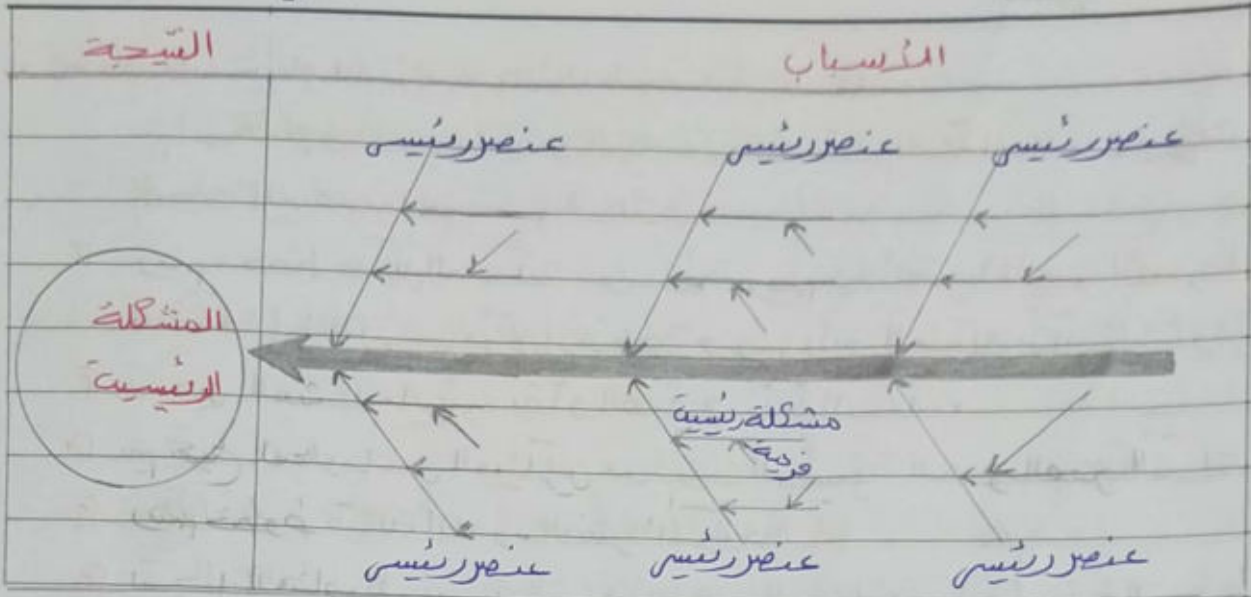 الأسباب
النتيجة
عنصر رئيسي
عنصر رئيسي
عنصر رئيسي
المشكلة
الرئيسية
مشكلة رئيسية
فرعية
عنصر رئيسي
عنصر رئيسي
عنصر رئيسي